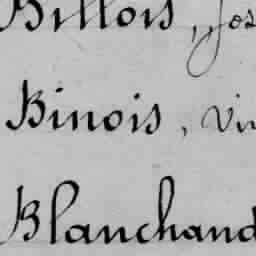 Billois, Jos
Binois, Vin
Blanchand